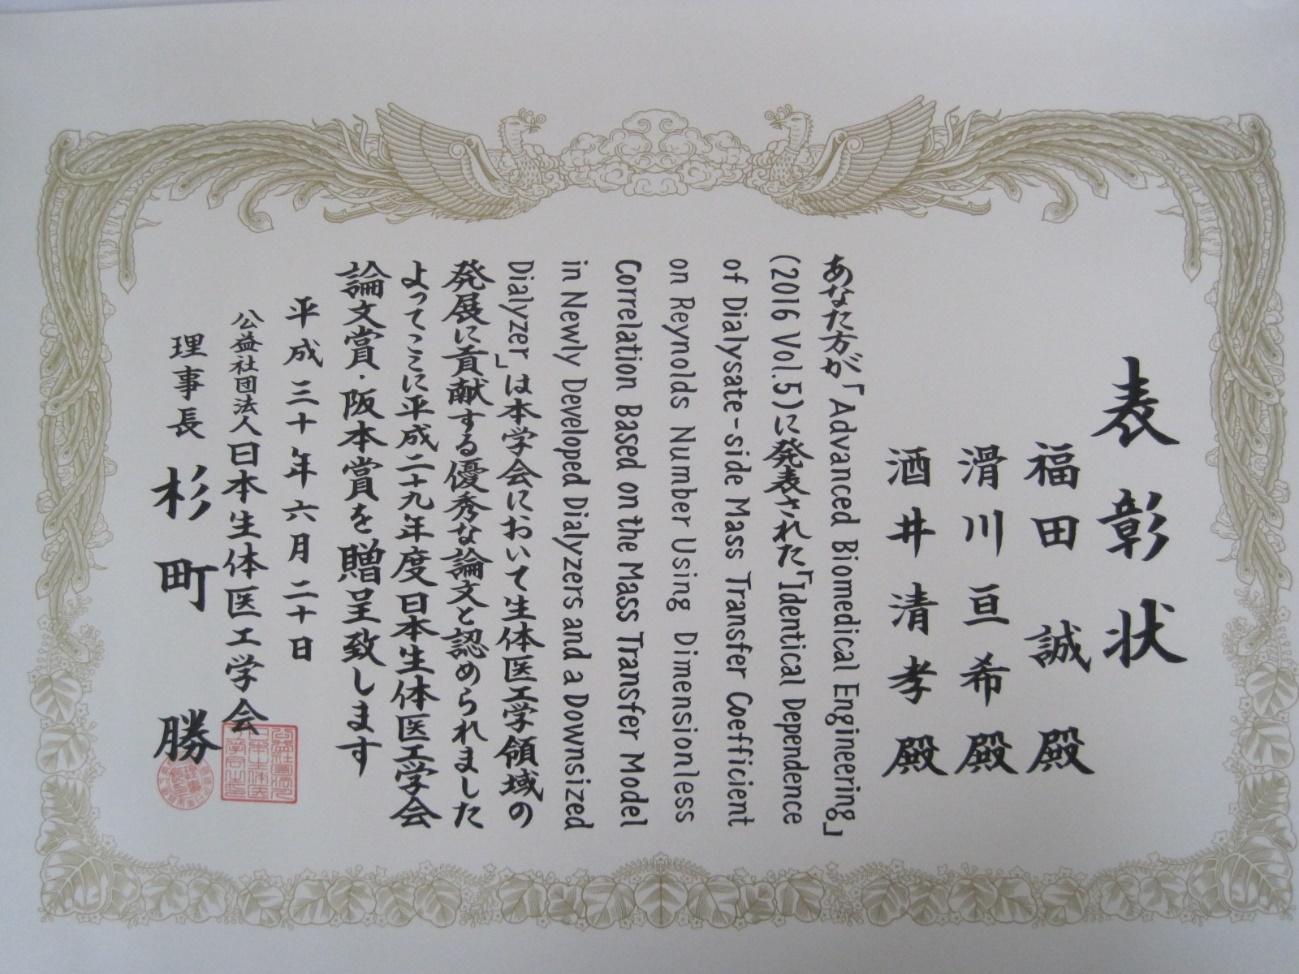 表彰状
福田 誠 殿
滑川亘希殿
酒井清孝殿
あなた方が「Advanced Biomedical Engineering」
(2016 Vol.5)に発表された「Identical Dependence
of Dialysate-side Mass Transfer Coefficient
on Reynolds Number Using Dimensionless
Correlation Based on the Mass Transfer Model
in Newly Developed Dialyzers and a Downsized
Dialyzer」は本学会において生体医工学領域の
発展に貢献する優秀な論文と認められました
よってここに平成二十九年度日本生体医工学会
論文賞・阪本賞を贈呈致します
平成三十年六月二十日
公益社団法人日本生体医工学会
理事長 杉町 勝